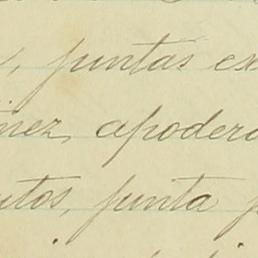 , juntas ex
nez, apodera
utos, junta p